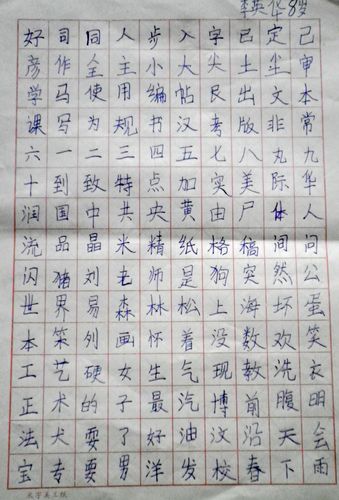 李英华8岁
好司同人步入字已定己
彦作全主小大尖土尘审
学马使用编帖艮出文本
课写为规书汉考版非常
六一二三四五七八丸九
十到致特点加实美际华
润国中共央黄由尸体人
流品晶米精纸格稿间问
闪猪刘老师是狗突然公
世界易森林松上海坏蛋
本笨列画怀着没数欢笑
工艺硬女生气现教洗衣
正术的子最汽博前腹明
法犬耍了好油汶沿天会
宝专要男洋发校春下雨